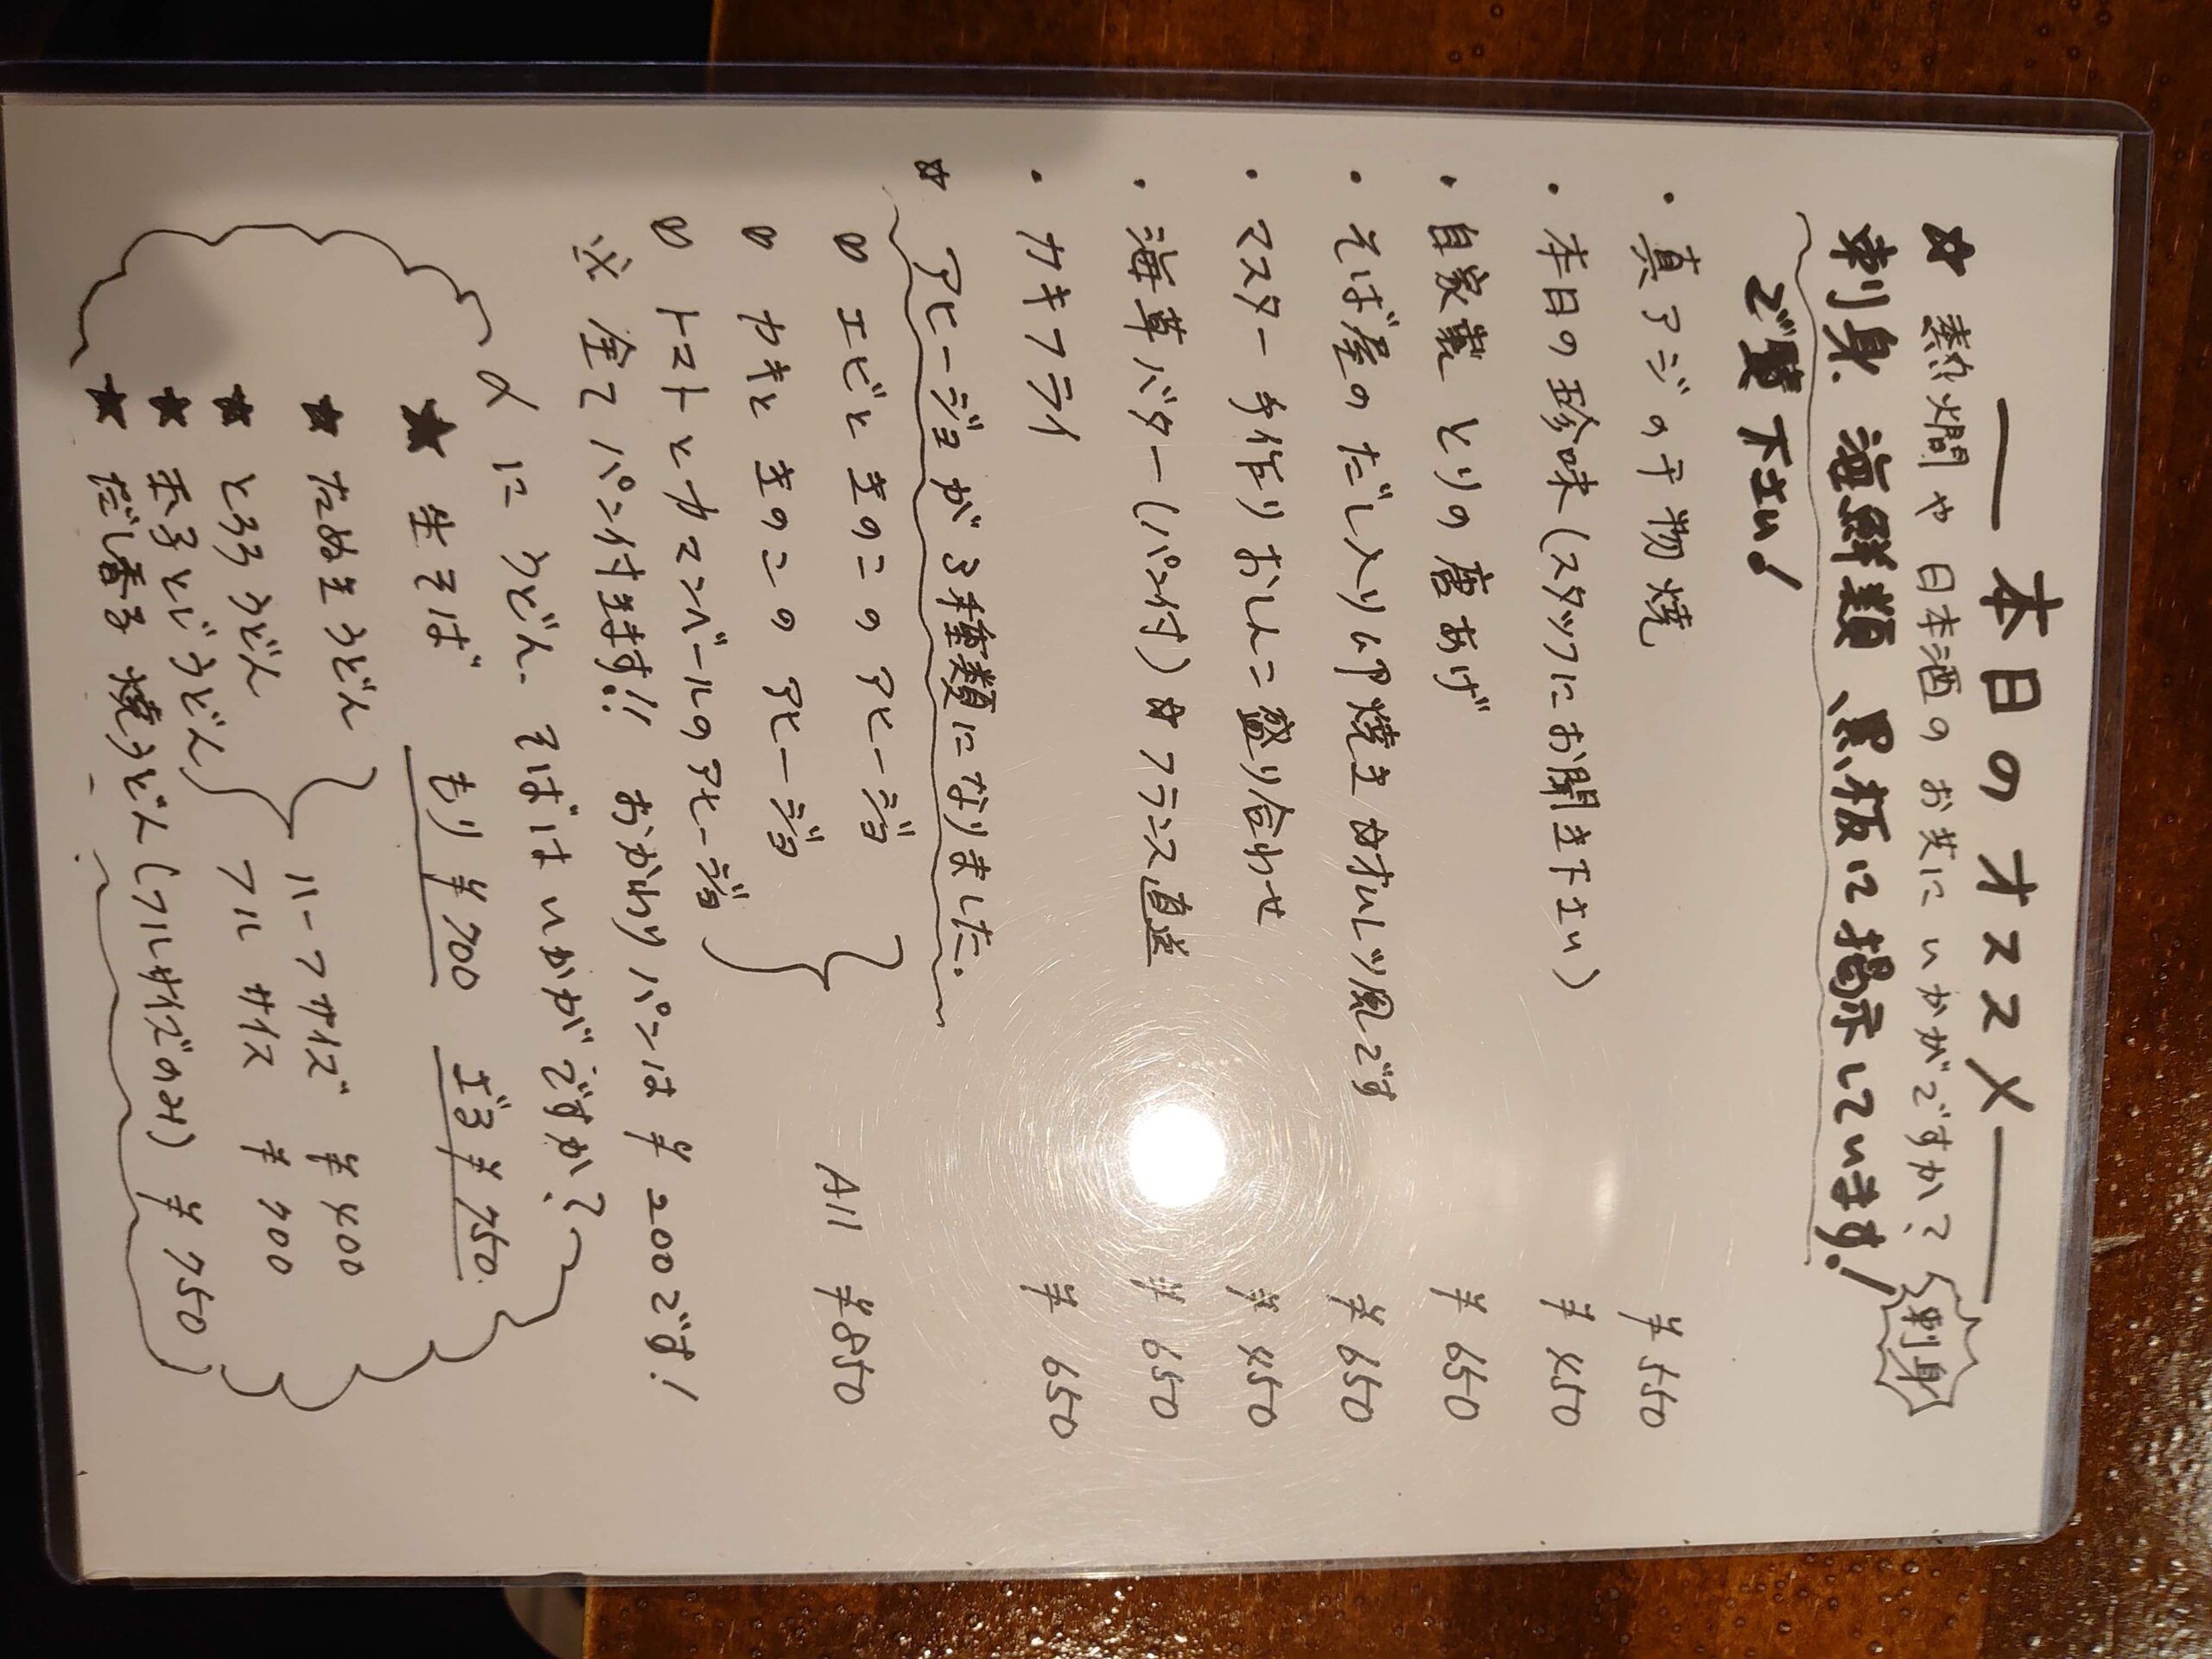 本日のオススメ
☆ 熱燗や日本酒のお共にいかがですか?
刺身
刺身、海鮮類、黒板に掲示しています!
ご覧下さい!
・真アジの干物焼 ¥550
・本日の珍味(スタッフにお聞き下さい) ¥450
・自家製とりの唐あげ ¥650
・そば屋のだし入り卵焼き ☆オムレツ風です ¥650
・マスター手作りおしんこ盛り合わせ ¥450
・海草バター(パン付) ☆フランス直送 ¥650
・カキフライ ¥650
☆ アヒージョが3種類になりました。
エビときのこのアヒージョ
カキときのこのアヒージョ
トマトとカマンベールのアヒージョ
All ¥850
※ 全てパン付きます!! おかわりパンは¥200です!
〆にうどん、そばはいかがですか?
★ 生そば もり¥700 ざる¥750
★ たぬきうどん
★ とろろうどん
★ 玉子とじうどん
ハーフサイズ ¥400
フルサイズ ¥700
★ だし香る焼うどん(フルサイズのみ) ¥750